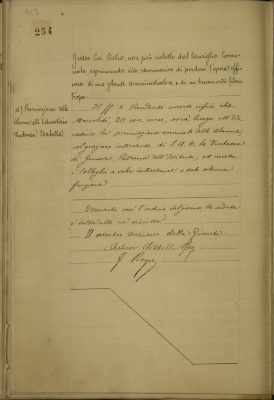 254
Grosso Cav. Pietro, non più rieletto dal Consiglio Comu-
nale, esprimendo il rammarico di perdere l'opera effi-
cace di un solerte amministratore e di un benemerito filan-
tropo.
2) Premiazione delle
alunne all'Educatorio
Duchessa Isabella
Il ff. di Presidente avverte infine che
Mercoledì, 20 corr. mese, avrà luogo all'Edu-
catorio la premiazione annuale delle alunne,
col grazioso intervento di S. A. la Duchessa
di Genova, Patrona dell'Istituto, ed invita
i Colleghi a voler intervenire a detta solenne
funzione.
Esaurito così l'ordine del giorno, la seduta
è sciolta
Il membro anziano della Giunta